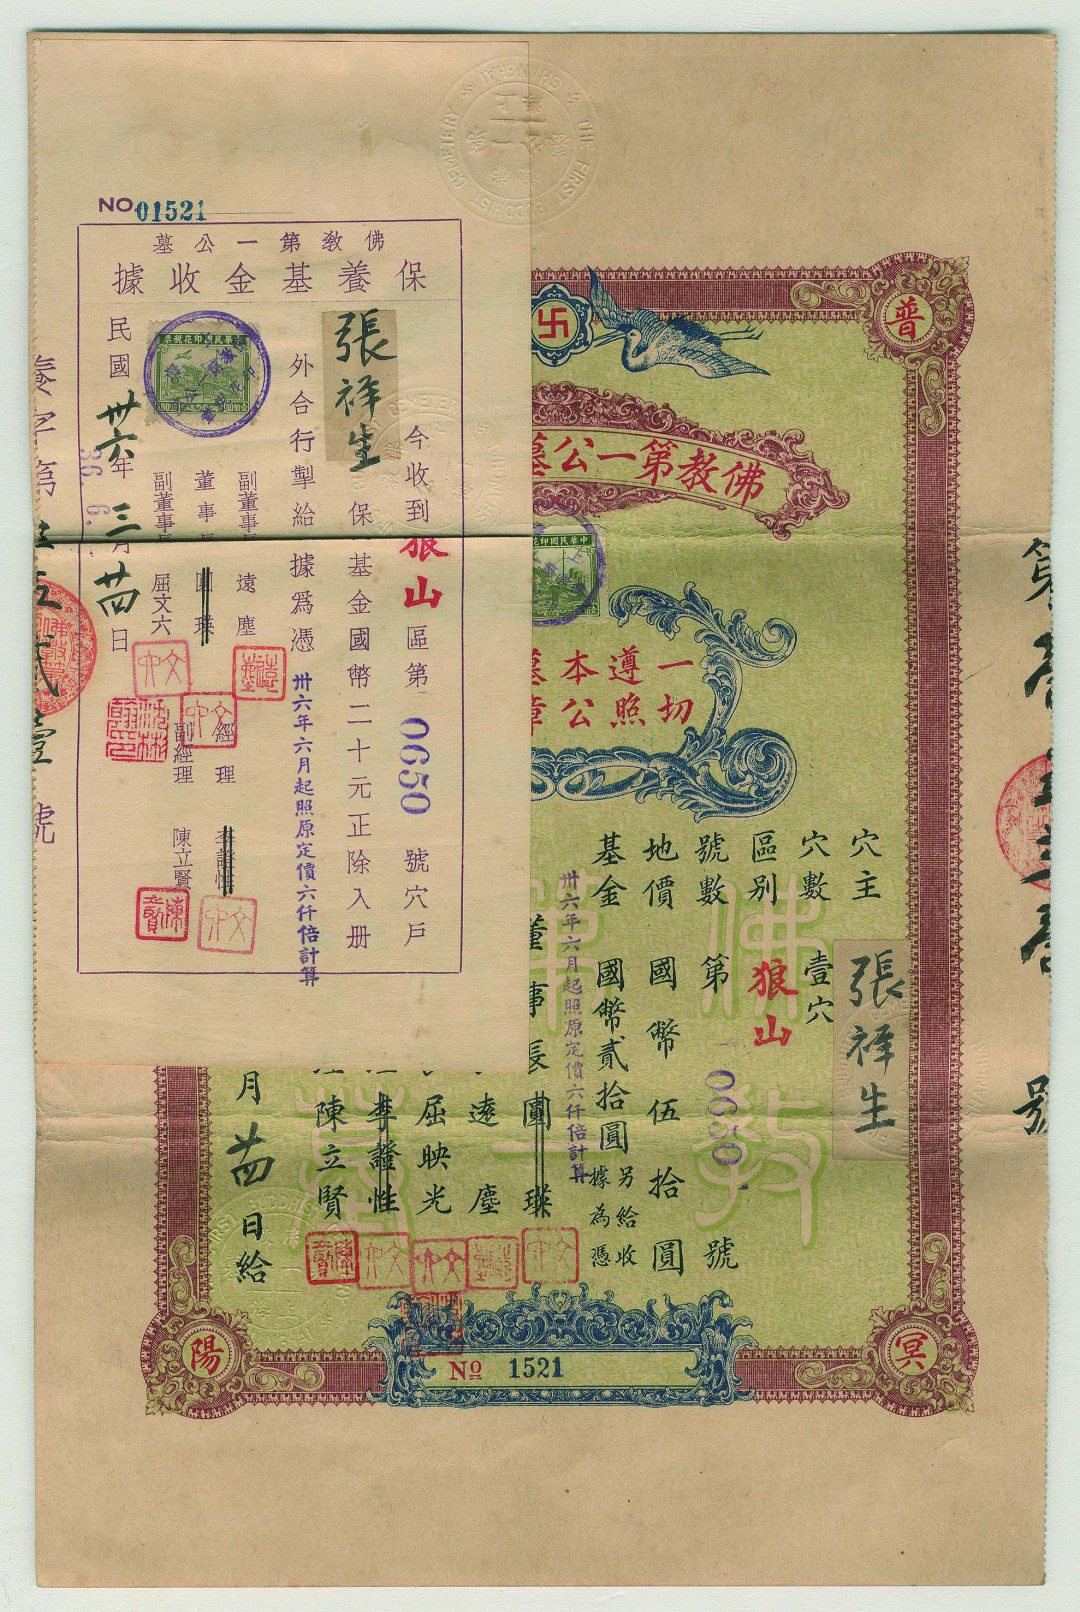 NO 01521
佛教第一公墓
保養基金收據
今收到狼山區第 0650 號穴戶
張祥生 保養基金國幣二十元正除入册
外合行掣給收據爲憑
卅六年六月起照原定價六仟倍計算
副董事長 遠塵
董事長 圓瑛
副董事長 屈文六
經理 李證性
副經理 陳立賢
民國卅六年三月廿四日
36. 6.
養字第
壹號
THE FIRST BUDDHIST CEMETERY
SHANGHAI
普
卐
佛教第一公墓
中華民國印花稅票
一切
遵照
本公
墓章
穴主 張祥生
穴數 壹穴
區别 狼山
號數 第 0650 號
地價 國幣 伍拾圓
基金 國幣貳拾圓 另給收據為憑
卅六年六月起照原定價六仟倍計算
董事長 圓瑛
遠塵
屈映光
李證性
陳立賢
月廿四日給
冥
陽
No 1521
第
號